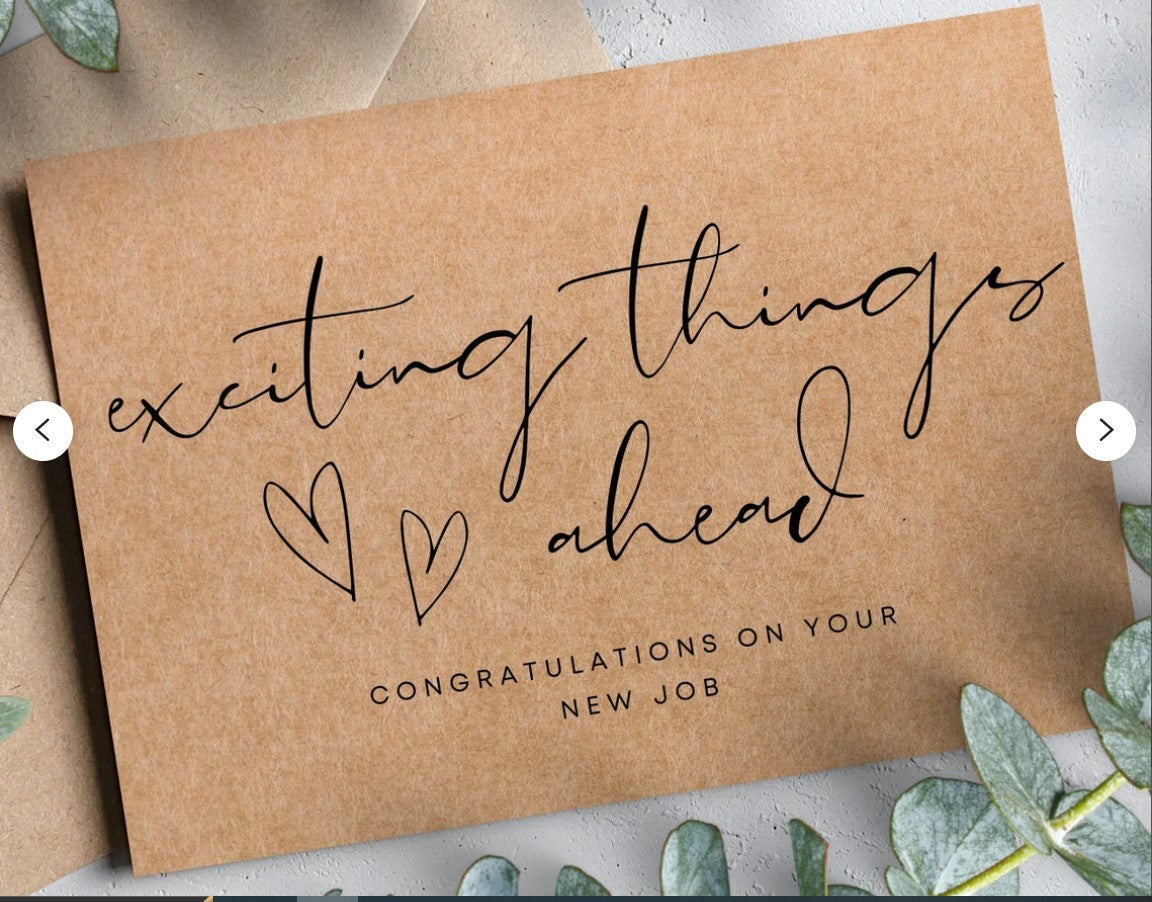 exciting things
ahead
CONGRATULATIONS ON YOUR
NEW JOB